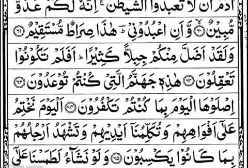 اٰدَمَ اَنْ لَّا تَعْبُدُوا الشَّيْطٰنَ ۚ اِنَّهٗ لَكُمْ عَدُوٌّ
مُّبِيْنٌ ۙ﴿۶۰﴾ وَّ اَنِ اعْبُدُوْنِيْ ؔؕ هٰذَا صِرَاطٌ مُّسْتَقِيْمٌ ﴿۶۱﴾
وَلَقَدْ اَضَلَّ مِنْكُمْ جِبِلًّا كَثِيْرًا ؕ اَفَلَمْ تَكُوْنُوْا
تَعْقِلُوْنَ ﴿۶۲﴾ هٰذِهٖ جَهَنَّمُ الَّتِيْ كُنْتُمْ تُوْعَدُوْنَ ﴿۶۳﴾
اِصْلَوْهَا الْيَوْمَ بِمَا كُنْتُمْ تَكْفُرُوْنَ ﴿۶۴﴾ اَلْيَوْمَ نَخْتِمُ
عَلٰٓى اَفْوَاهِهِمْ وَتُكَلِّمُنَاۤ اَيْدِيْهِمْ وَ تَشْهَدُ اَرْجُلُهُمْ
بِمَا كَانُوْا يَكْسِبُوْنَ ﴿۶۵﴾ وَلَوْ نَشَآءُ لَطَمَسْنَا عَلٰٓى